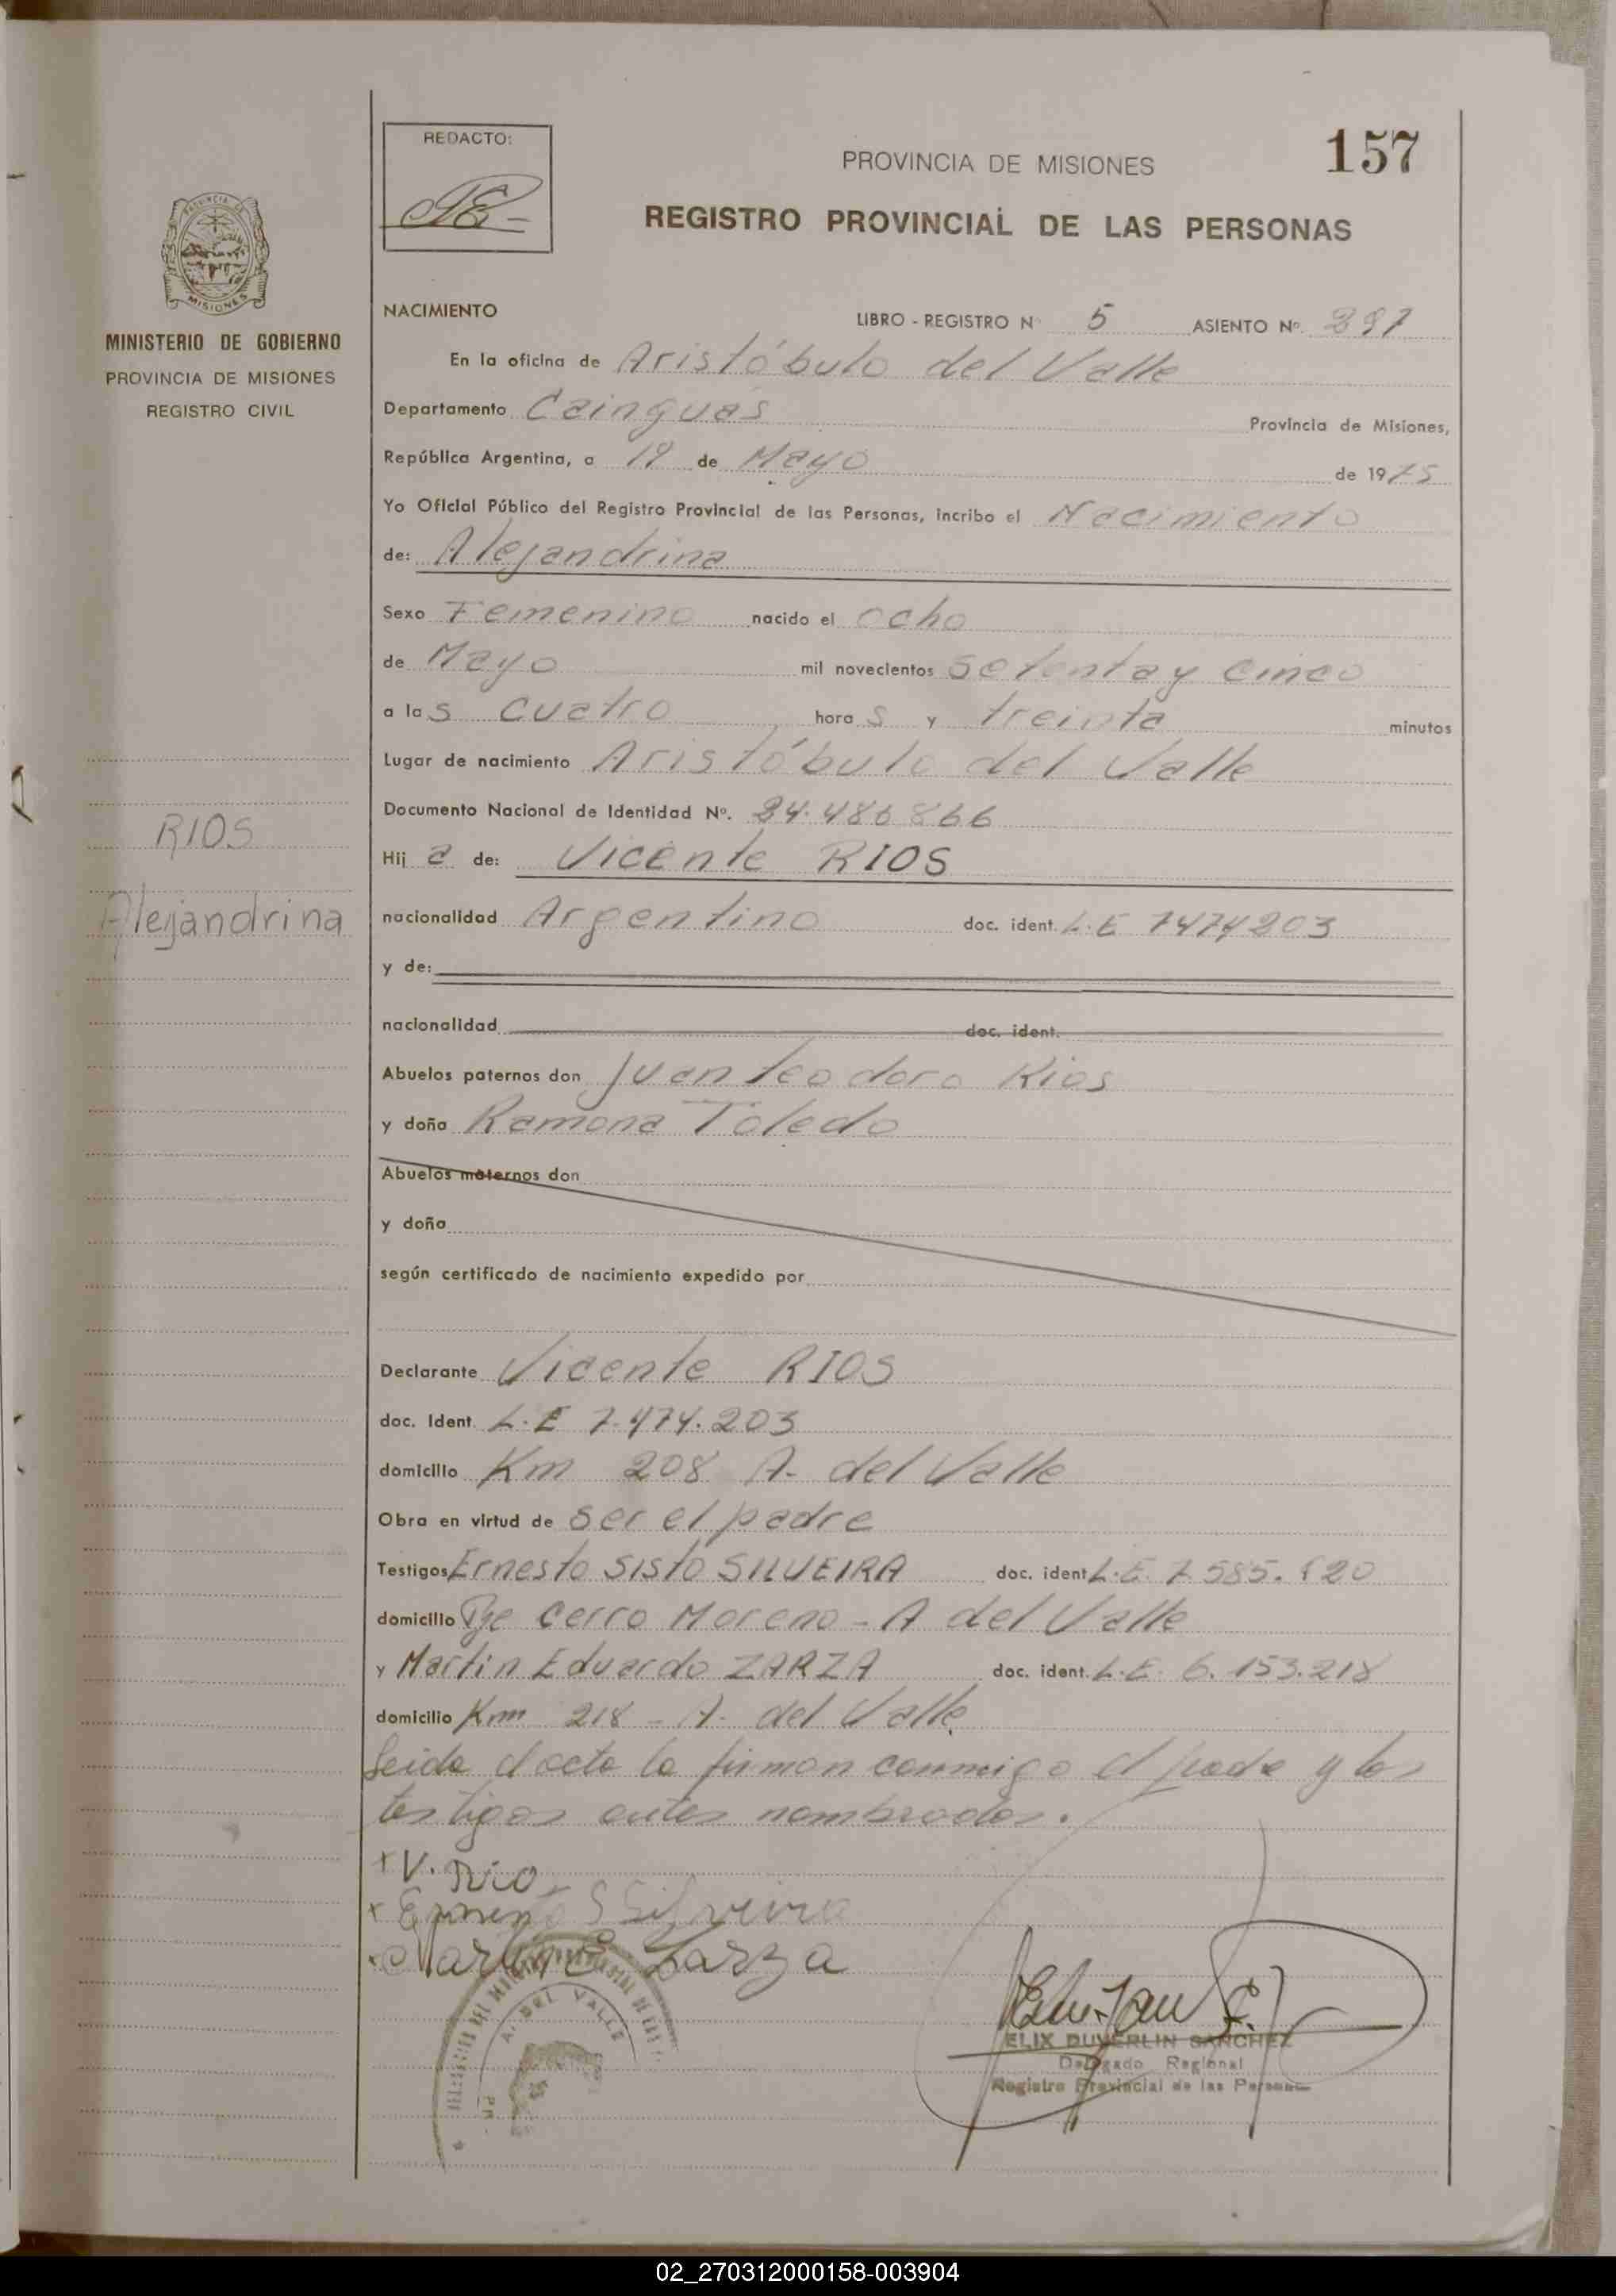 157
REDACTO:
PROVINCIA DE MISIONES
REGISTRO PROVINCIAL DE LAS PERSONAS
MISIONES
MINISTERIO DE GOBIERNO
PROVINCIA DE MISIONES
REGISTRO CIVIL
RIOS
Alejandrina
NACIMIENTO LIBRO - REGISTRO Nº 5 ASIENTO Nº. 397
En la oficina de Aristóbulo del Valle
Departamento Cainguas Provincia de Misiones,
República Argentina, a 19 de Mayo de 1975
Yo Oficial Público del Registro Provincial de las Personas, incribo el Nacimiento
de: Alejandrina
Sexo Femenino nacido el ocho
de Mayo mil novecientos setenta y cinco
a las cuatro horas y treinta minutos
Lugar de nacimiento Aristóbulo del Valle
Documento Nacional de Identidad Nº. 24.486866
Hija de: Vicente RIOS
nacionalidad Argentino doc. ident. L.E 7474203
y de:
nacionalidad doc. ident.
Abuelos paternos don Juan Teodoro Rios
y doña Ramona Toledo
Abuelos maternos don
y doña
según certificado de nacimiento expedido por
Declarante Vicente RIOS
doc. Ident. L.E 7.474.203
domicilio Km 208 A. del Valle
Obra en virtud de ser el padre
Testigos Ernesto SISTO SILVEIRA doc. ident L.E. 7.585.820
domicilio Pje Cerro Moreno - A del Valle
y Martin Eduardo ZARZA doc. ident. L.E. 6.153.218
domicilio Km 218 - A. del Valle
Leida el acta la firman conmigo el padre y los
testigos antes nombrados.
+ V. Rio
S Silveira
Martin E Zarza
A. DEL VALLE
ELIX DUVERLIN SANCHEZ
Delegado Regional
Registro Provincial de las Personas
02_270312000158-003904